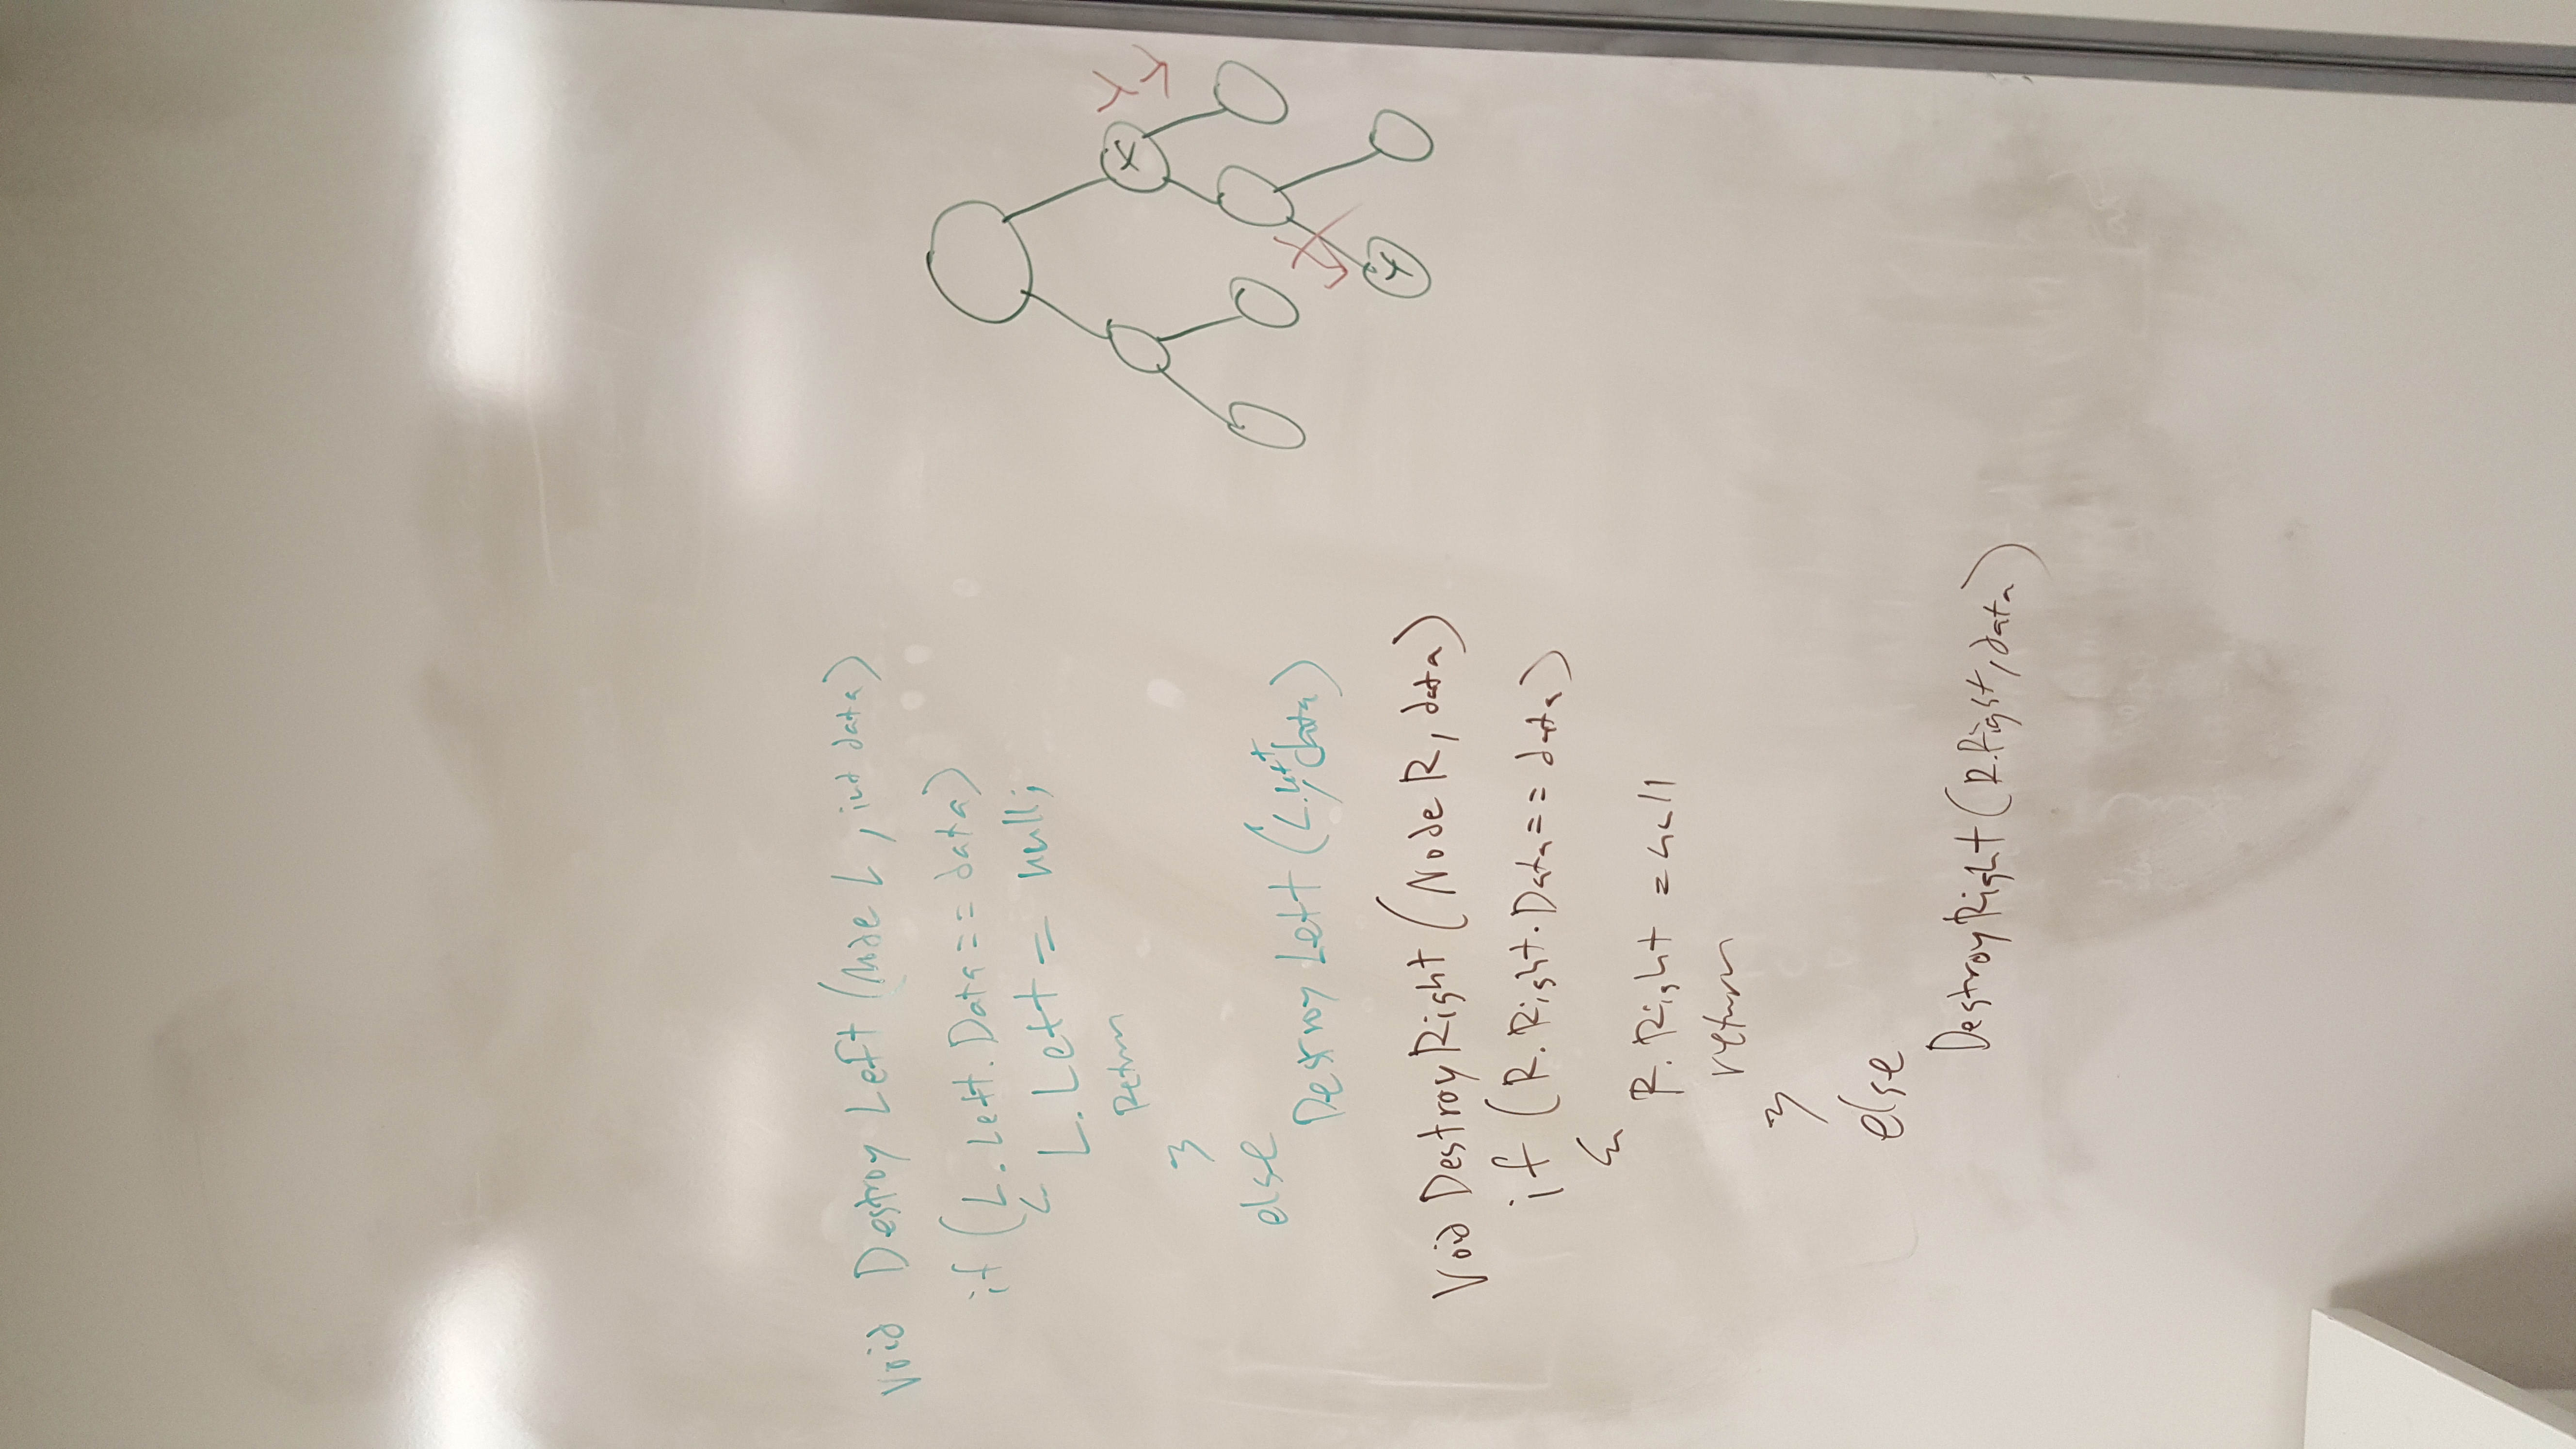 Void Destroy Left (Node L, int data)
if (L. Left. Data == data)
{ L. Left = null;
Return
}
else
Destroy Left (L. Left, data)
Void Destroy Right (Node R, data)
if (R. Right. Data == data)
{
R. Right = null
return
}
else
Destroy Right (R. Right, data)
X
Y